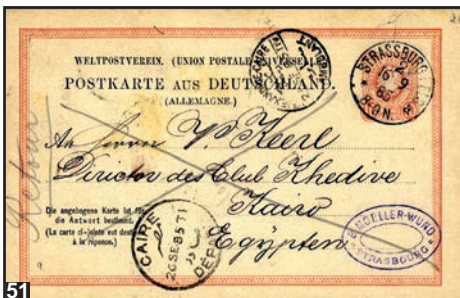 WELTPOSTVEREIN. (UNION POSTALE UNIVERSELLE)
POSTKARTE AUS DEUTSCHLAND.
(ALLEMAGNE.)
STRASSBURG
16 9
8-9 N.
Retour
An Herrn V. Keerl
Director des Club Khedive
Kairo
Egypten
Die angebogene Karte ist für
die Antwort bestimmt.
(La carte ci-jointe est destinée
à la réponse.)
CAIRE
DEPART
MOELLER-WURD
STRASBOURG
51